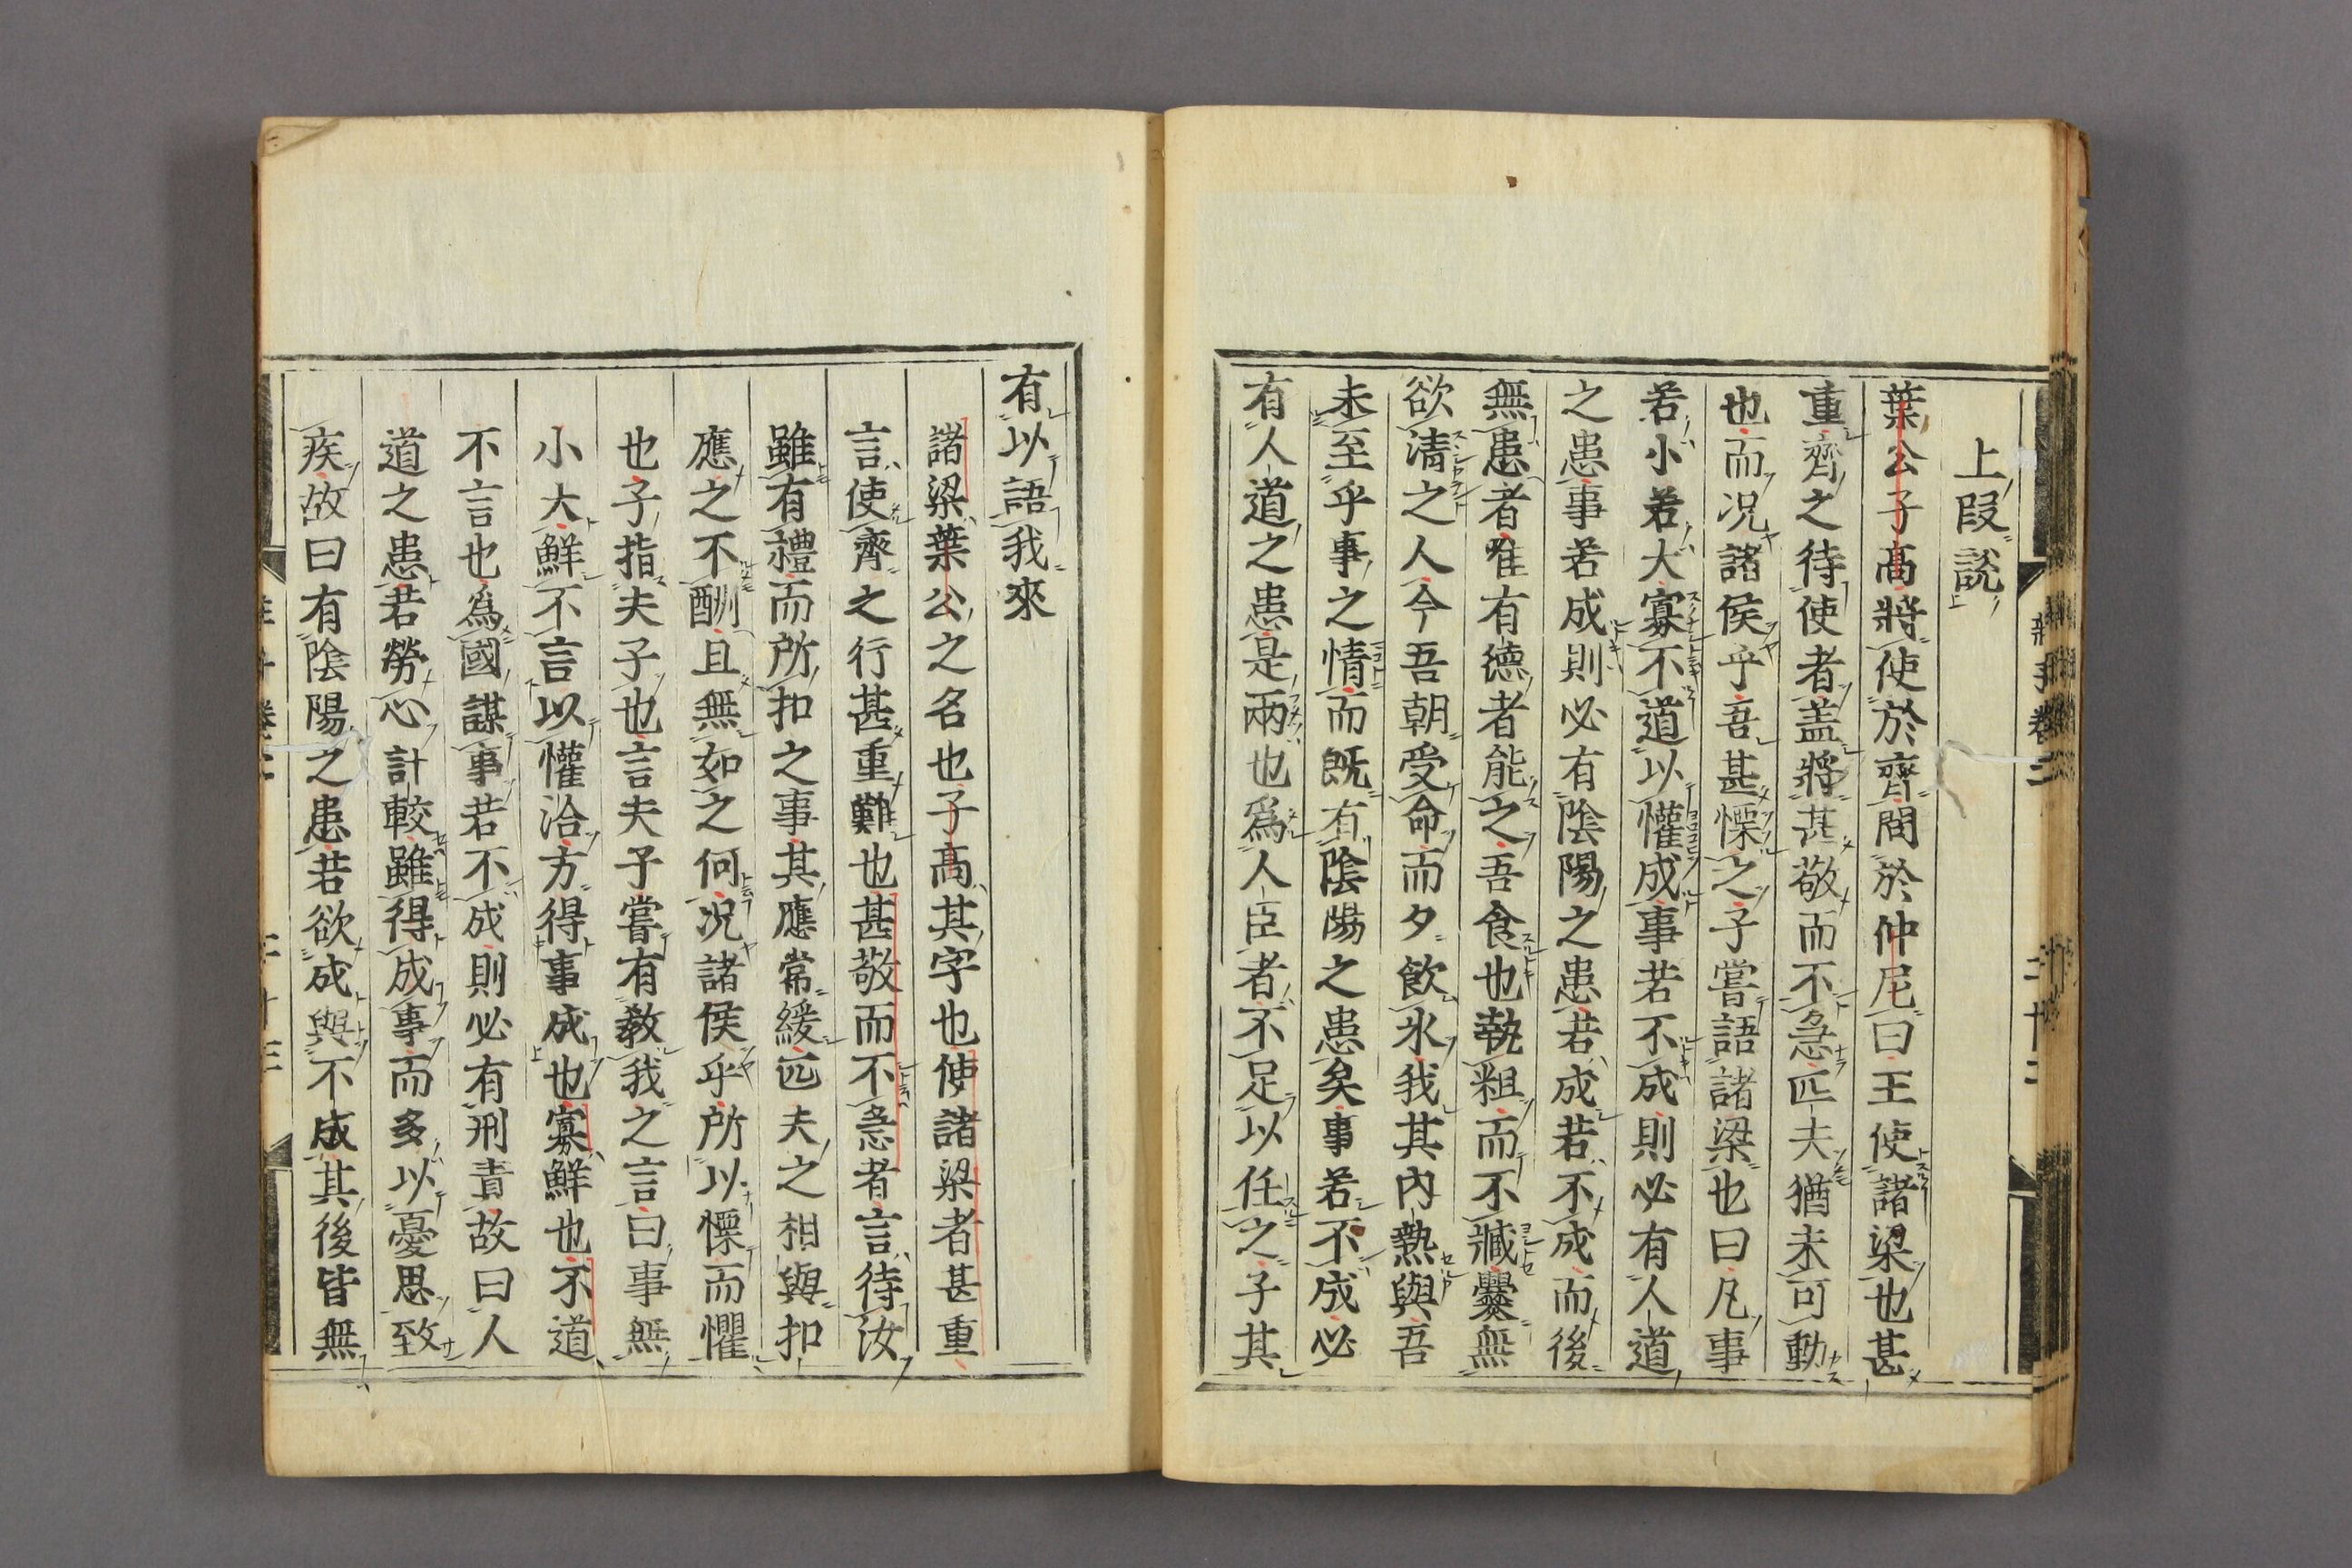 上叚説
葉公子髙將使於齊問於仲尼曰王使諸梁也甚
重齊之待使者盖將甚敬而不急匹夫猶未可動
也而况諸侯乎吾甚慄之子嘗語諸梁也曰凡事
若小若大寡不道以懽成事若不成則必有人道
之患事若成則必有陰陽之患若成若不成而後
無患者唯有德者能之吾食也執粗而不臧爨無
欲清之人今吾朝受命而夕飲氷我其内熱與吾
未至乎事之情而既有陰陽之患矣事若不成必
有人道之患是兩也為人臣者不足以任之子其
有以語我來
諸梁葉公之名也子髙其字也使諸梁者甚重
言使齊之行甚重難也甚敬而不急者言待汝
雖有禮而所扣之事其應常緩匹夫之相與扣
應之不酬且無如之何况諸侯乎所以慄而懼
也子指夫子也言夫子嘗有教我之言曰事無
小大鮮不言以懽洽方得事成也寡鮮也不道
不言也為國謀事若不成則必有刑責故曰人
道之患若勞心計較雖得成事而多以憂思致
疾故曰有陰陽之患若欲成與不成其後皆無